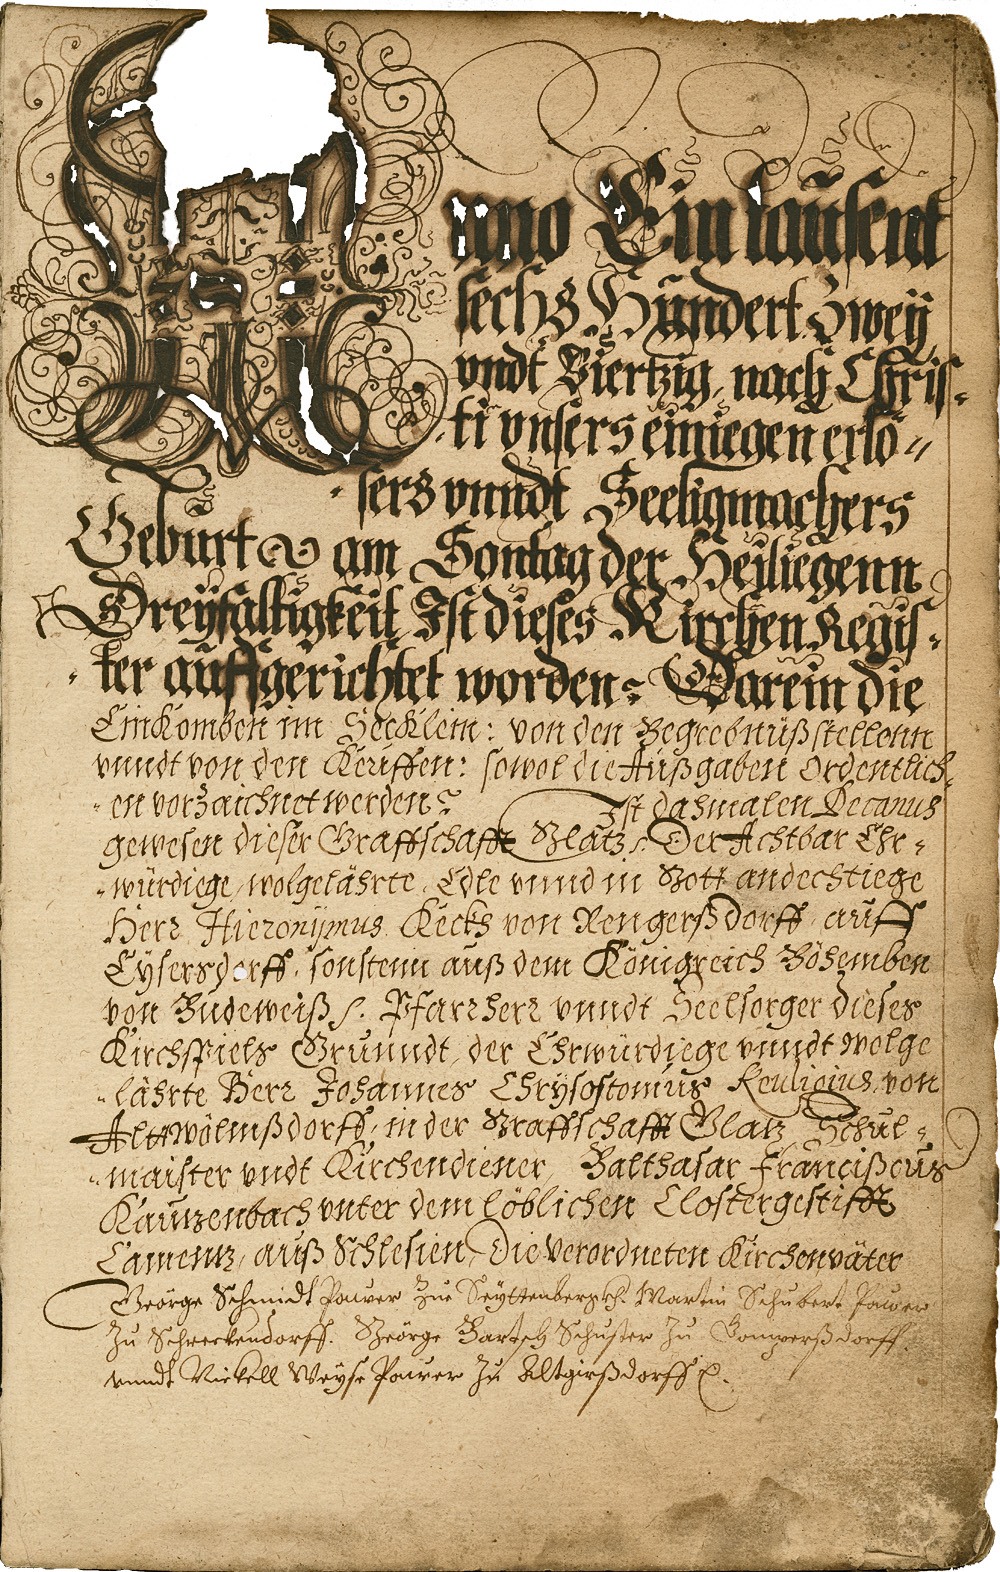 Anno Ein tausent
sechs Hundert Zweÿ
vndt Viertzig, nach Chris-
ti vnsers einiegen erlö-
sers vnndt Seeligmachers
Geburt am Sontag der Heiliegenn
Dreÿfaltigkeit, Ist dieses Kirchen Regis-
ter auffgerichtet worden: Darein die
Einkomben im Secklein: von den Begrebnüßstellenn
vnndt von den : sowol die Außgaben Ordentlich-
en vorzaichnet werden: Ist dahmalen Decanus
gewesen dieser Graffschafft Glatz: Der Achtbar Ehr-
würdiege, wolgelährte, Edle vnnd in Gott andechtiege
Herr Hieronÿmus Kecks von Rengerßdorff auff
Eÿsersdorff, sonstenn auß dem Königreich Böhemben
von Budeweiß. Pfarrherr vnndt Seelsorger dieses
Kirchspiels Grunndt, der Ehrwürdiege vnndt wolge
lährte Herr Johannes Chrÿsostomus Keuligius von
Altwölmßdorff, in der Graffschafft Glatz, Schul-
maister vndt Kirchendiener, Balthasar Francißcus
Kauzenbach vnter dem löblichen Clostergestifft
Camentz, auß Schlesien, Die verordneten Kirchenväter
Geörge Schmidt Pawer Zue Seÿttenbergkh. Martin Schubert Pawer
Zu Schreckendorff. Geörge Bartsch Schuster Zu Gomperßdorff.
vnndt Nickell Weÿse Pawer Zu Altgirßdorff